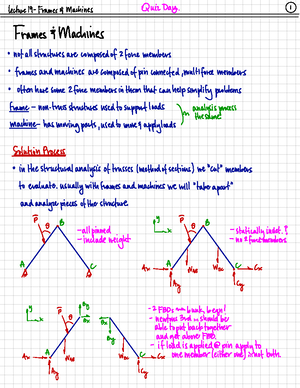 Lecture 19- Frames & Machines
Quiz Day
1
Frames & Machines
• not all structures are composed of 2 force members
• frames and machines are composed of pin connected, multiforce members
• often have some 2 force members in them that can help simplify problems
frame - non-truss structures used to support loads
machine - has moving parts, used to move & apply loads
analysis process
the same!
Solution Process
• in the structural analysis of trusses (method of sections) we "cut" members
to evaluate. usually with frames and machines we will "take apart"
and analyze pieces of the structure.
P
θ
B
- all pinned
- include weight
A
C
y
x
P
θ
B
- statically indet.?
- no 2 force members
Ax
A
WAB
WBC
C
Cx
Ay
Cy
y
x
P
θ
By
Bx
Bx
By
Ax
A
WAB
Ay
WBC
C
Cx
Cy
- 2 FBDs
- newtons 3rd
able to put back together
and get above FBD.
- if load is applied @ pin apply to
one member (either one) not both.